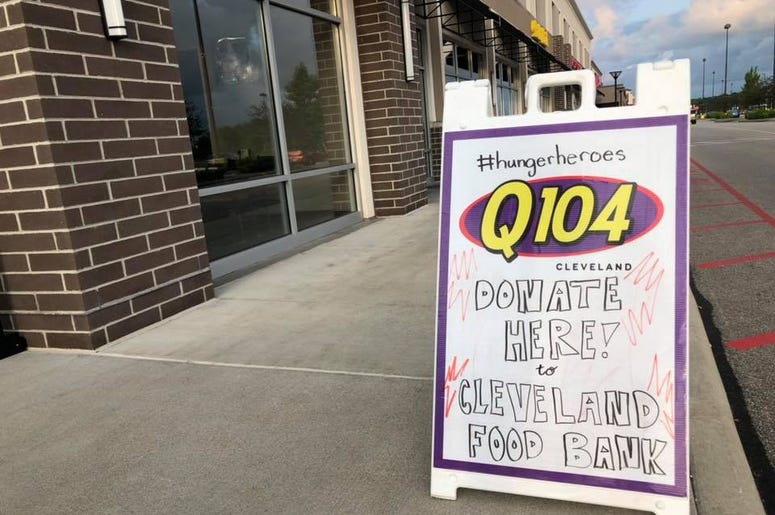 #hungerheroes
Q104
CLEVELAND
DONATE
HERE!
to
CLEVELAND
FOOD BANK